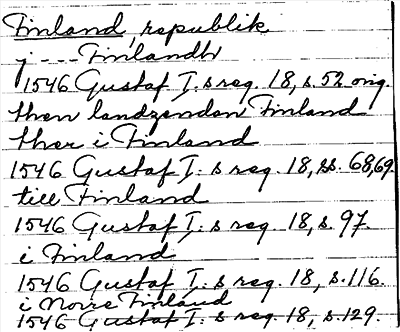 Finland, republik
j --- Finlandh
1546 Gustaf I. s reg. 18, s. 52 orig.
then landzenden Finland
ther i Finland
1546 Gustaf I. s reg. 18, ss. 68,69.
till Finland
1546 Gustaf I. s reg. 18, s. 97.
i Finland
1546 Gustaf I. s reg. 18, s. 116.
i Norre Finland
1546 Gustaf I. s reg. 18, s. 129.